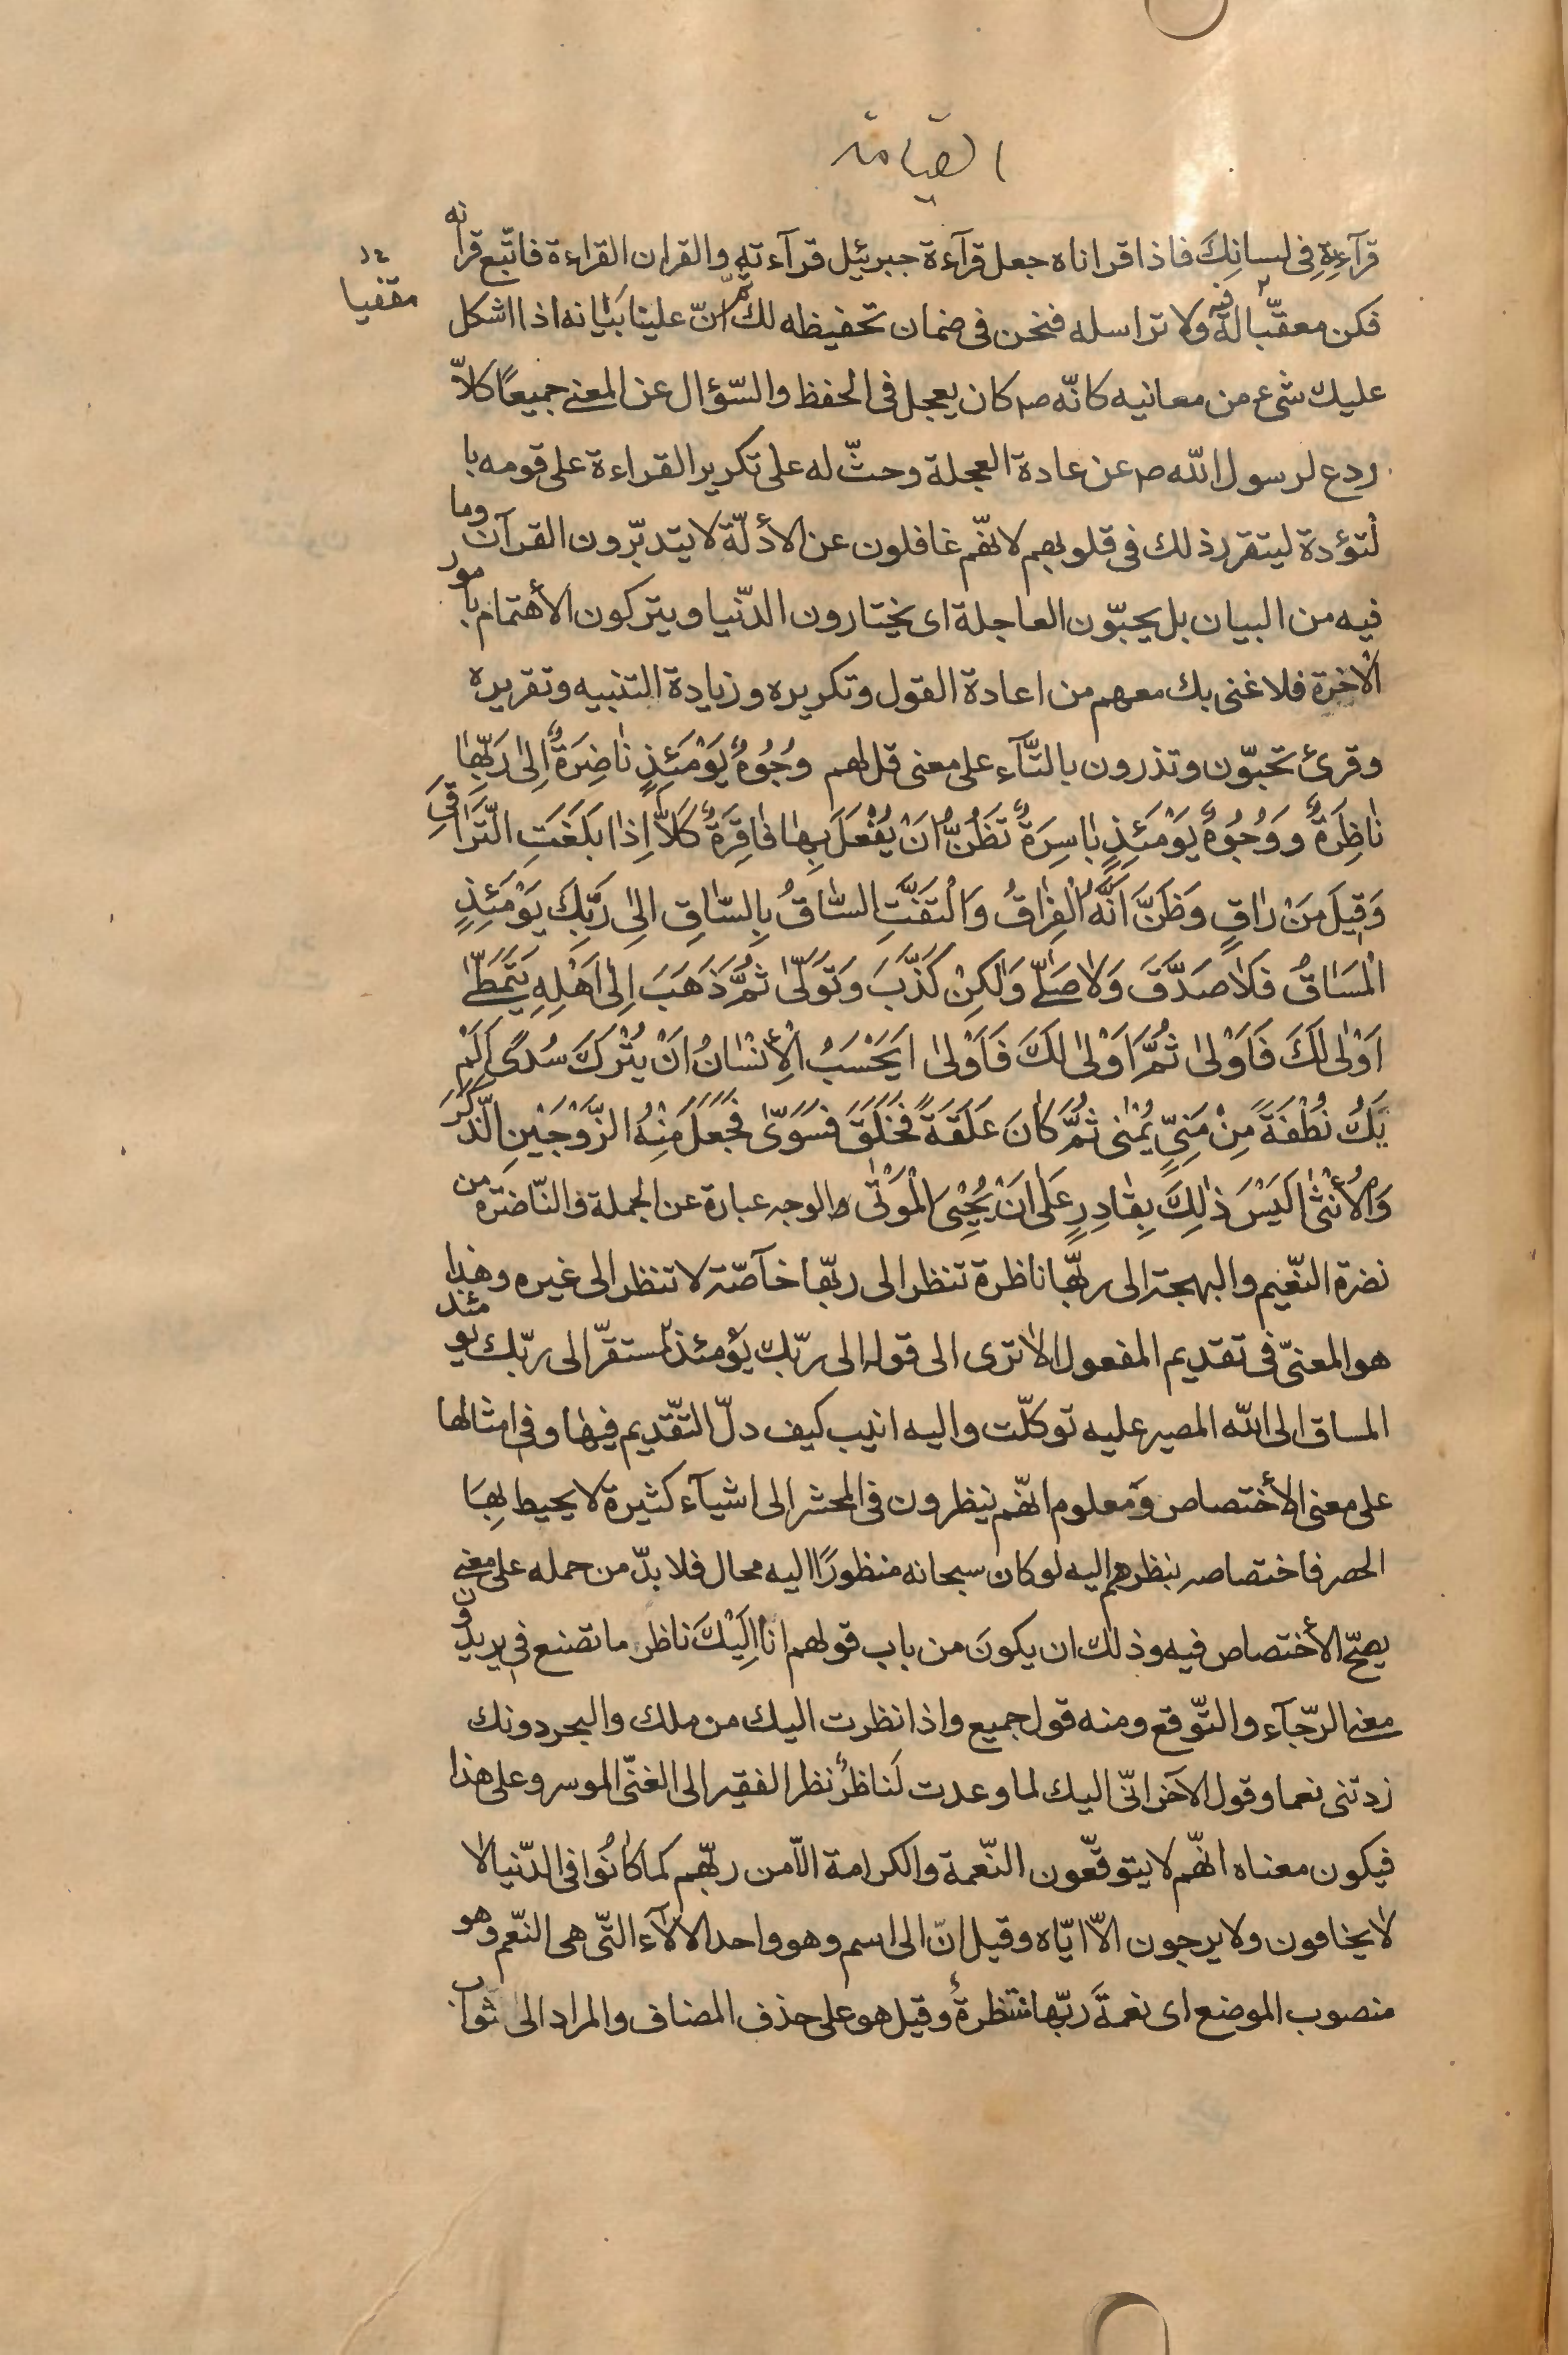 القيامة
قرآءته فى لسانك فاذا قراناه جعل قرآءة جبرئيل قرآءته والقران القراءة فاتّبع قرانه
مقفيا
فكن معقّبا له فيه ولا تراسله فنحن فى ضمان تحفيظه لك ثمّ انّ علينا بيانه اذا اشكل
عليك شىء من معانيه كانّه ص كان يعجل فى الحفظ والسّؤال عن المعنے جميعًا كلاّ
ردع لرسول اللّه ص عن عادة العجلة وحثّ له على تكرير القراءة على قومه با
لتؤدة ليتقرر ذلك فى قلوبهم لانهّم غافلون عن الأدلّة لا يتدبّرون القرآن وما
فيه من البيان بل يحبّون العاجلة اى يختارون الدّنيا ويتركون الأهتمام بامور
الآخرة فلا غنى بك معهم من اعادة القول وتكريره وزيادة التنبيه وتقريره
وقرئ تحبّون وتذرون بالتّآء على معنى قل لهم وُجُوهٌ يَوْمَئِذٍ نٰاضِرَةٌ اِلىٰ رَبِّهٰا
نٰاظِرَةٌ وَوُجُوهٌ يَوْمَئِذٍ بٰاسِرَةٌ تَظُنُّ اَنْ يُفْعَلَ بِهٰا فٰاقِرَةٌ كَلاّٰ اِذٰا بَلَغَتِ التَّرٰاقِىَ
وَقِيلَ مَنْ رٰاقٍ وَظَنَّ اَنَّهُ الْفِرٰاقُ وَالْتَفَّتِ السّٰاقُ بِالسّٰاقِ اِلىٰ رَبِّكَ يَوْمَئِذٍ
الْمَسٰاقُ فَلاٰ صَدَّقَ وَلاٰ صَلّٰے وَلٰكِنْ كَذَّبَ وَتَوَلّىٰ ثُمَّ ذَهَبَ اِلىٰ اَهْلِهِ يَتَمَطّٰے
اَوْلىٰ لَكَ فَاَوْلىٰ ثُمَّ اَوْلىٰ لَكَ فَاَوْلىٰ اَيَحْسَبُ الْأِنْسٰانُ اَنْ يُتْرَكَ سُدًى اَلَمْ
يَكُ نُطْفَةً مِنْ مَنِىٍّ يُمْنىٰ ثُمَّ كٰانَ عَلَقَةً فَخَلَقَ فَسَوّىٰ فَجَعَلَ مِنْهُ الزَّوْجَيْنِ الذَّكَرَ
وَالْأُنْثىٰ اَلَيْسَ ذٰلِكَ بِقٰادِرٍ عَلىٰ اَنْ يُحْيِىَ الْمَوْتىٰ والوجه عبارة عن الجملة والنّاضرة من
نضرة النّعيم والبهجة الى ربّها ناظرة تنظر الى ربّها خآصّة لا تنظر الى غيره وهذا
هو المعنىّ فى تقديم المفعول الا ترى الى قوله الى ربّك يومئذ لمستقرّ الى ربّك يومئذ
المساق الى اللّه المصير عليه توكلّت واليه انيب كيف دلّ التقّديم فيها وفى امثالها
على معنى الأختصاص ومعلوم انهّم ينظرون فى المحشر الى اشيآء كثيرة لا يحيط بها
الحصر فاختصاصه بنظرهم اليه لو كان سبحانه منظورًا اليه محال فلا بدّ من حمله على معنے
يصحّ الأختصاص فيه وذلك ان يكونَ من باب قولهم انا اِلَيْكَ ناظر ما تصنع فى يريدون
معنے الرّجآء والتّوقع ومنه قول جميع واذا نظرت اليك من ملك والبحر دونك
زدتنى نعما وقول الآخر انّى اليك لما وعدت لَناظرٌ نظر الفقير الى الغنىّ الموسر وعلى هذا
فيكون معناه انهّم لا يتوقّعون النّعمة والكرامة الاّ من ربهّم كما كانُوا فى الدّنيا لا
لا يخافون ولا يرجون الاّ ايّاه وقيل انّ الى اسم وهو واحد الالآء التّى هى النّعم وهو
منصوب الموضع اى نعمةَ ربّها منتظرةٌ وقيل هو على حذف المضاف والمراد الى ثواب